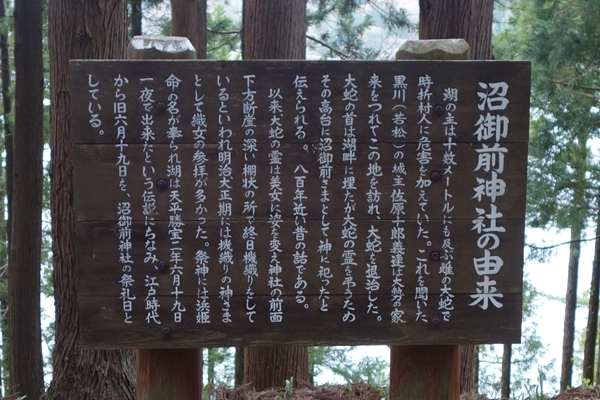 沼御前神社の由来
湖の主は十数メートルにも及ぶ雌の大蛇で
時折村人に危害を加えていた。これを聞いた
黒川（若松）の城主佐原十郎義連は大勢の家
来をつれてこの地を訪れ、大蛇を退治した。
大蛇の首は湖畔に埋たが大蛇の霊を弔うため
その高台に沼御前さまとして神に祀ったと
伝えられる。八百年近い昔の話である。
以来大蛇の霊は美女に姿を変え神社の前面
下方断崖の深い棚状の所で終日機織りをして
いるといわれ明治大正期には機織りの神さま
として織女の参拝が多かった。祭神には浜姫
命の名が奉られ湖は天正勝宝二年六月十九日
一夜で出来たという伝説にちなみ、江戸時代
から旧六月十九日を、沼御前神社の祭礼日と
している。